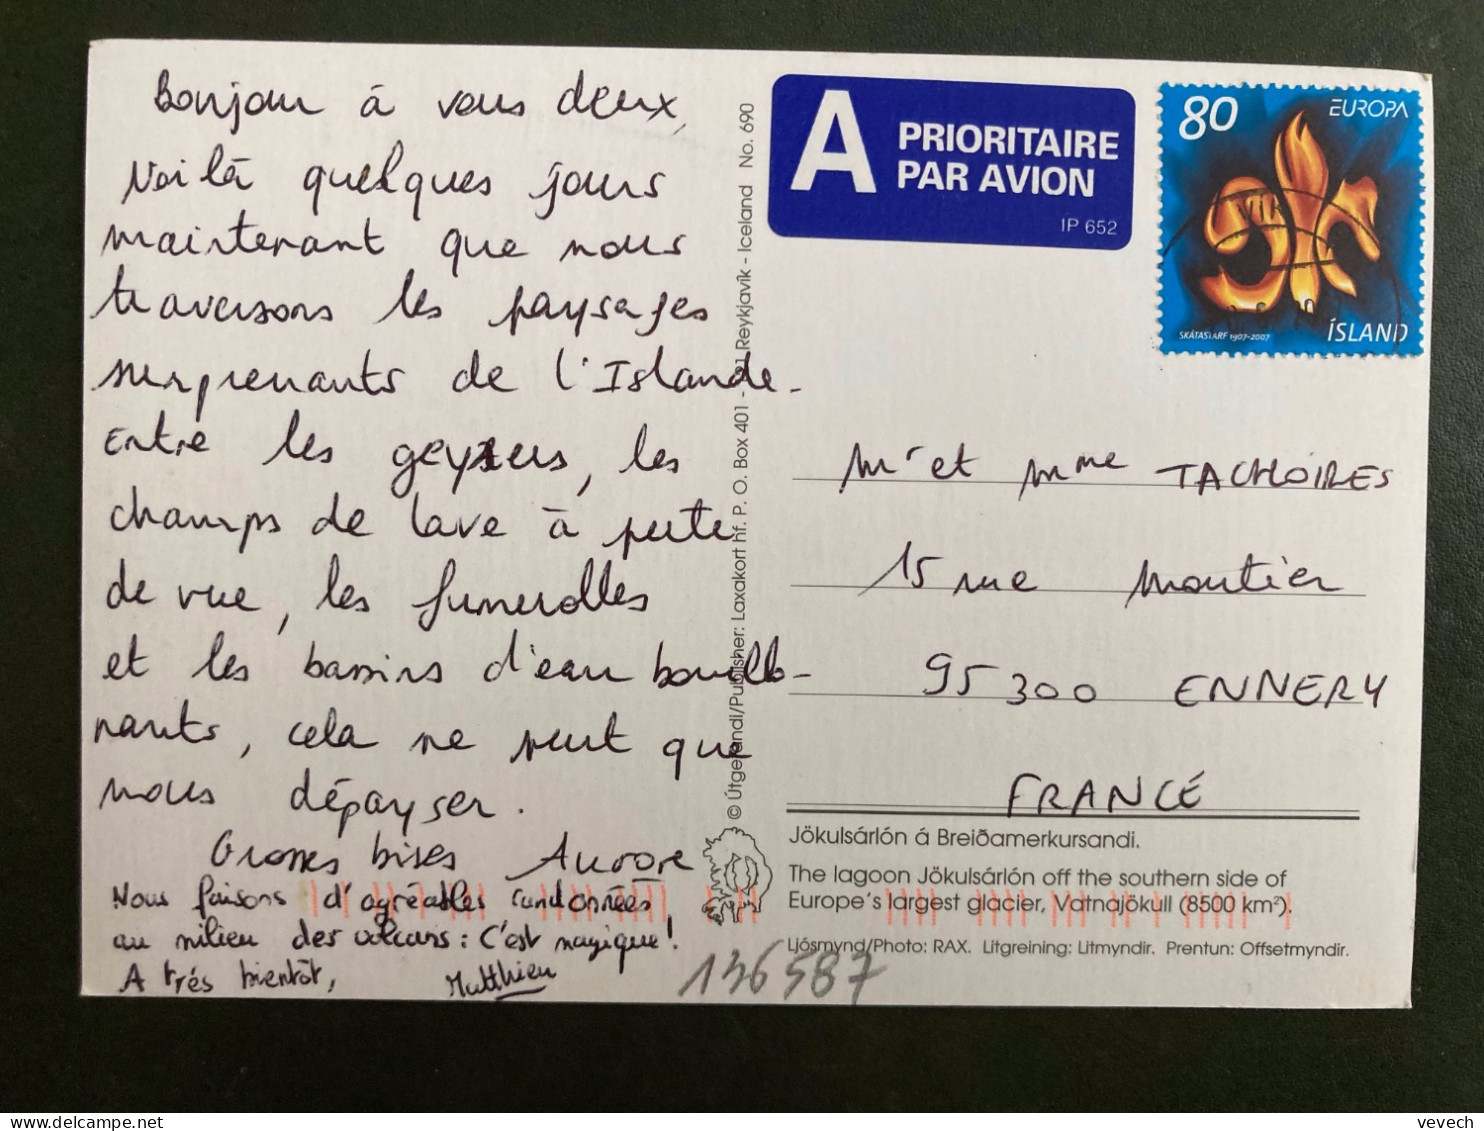 Bonjour à vous deux,
Voilà quelques jours
maintenant que nous
traversons les paysages
surprenants de l'Islande.
Entre les geysers, les
champs de lave à perte
de vue, les fumerolles
et les bassins d'eau bouillo-
nnants, cela ne peut que
nous dépayser.
Grosses bises Aurore
Nous faisons d'agréables randonnées
au milieu des volcans : C'est magique !
A très bientôt, Matthieu
© Útgefandi/Publisher: Laxakort hf. P. O. Box 401 - 121 Reykjavík - Iceland No. 690
A PRIORITAIRE
PAR AVION
IP 652
80 EUROPA
VIK
SKÁTASTARF 1907-2007
ÍSLAND
Mr et Mme TACHOIRES
15 rue Moutier
95300 ENNERY
FRANCE
Jökulsárlón á Breiðamerkursandi.
The lagoon Jökulsárlón off the southern side of
Europe's largest glacier, Vatnajökull (8500 km²).
Ljósmynd/Photo: RAX. Litgreining: Litmyndir. Prentun: Offsetmyndir.
136587
vevech